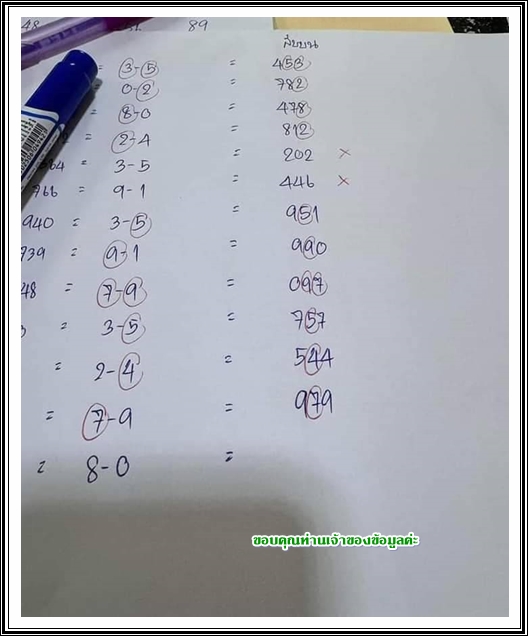 48 89
สิบบน
= 3-5 = 453
= 0-2 = 782
= 8-0 = 478
= 2-4 = 812
364 = 3-5 = 202 ×
766 = 9-1 = 446 ×
940 = 3-5 = 951
739 = 9-1 = 990
48 = 7-9 = 097
= 3-5 = 757
= 2-4 = 544
= 7-9 = 979
= 8-0 =
ขอบคุณท่านเจ้าของข้อมูลค่ะ